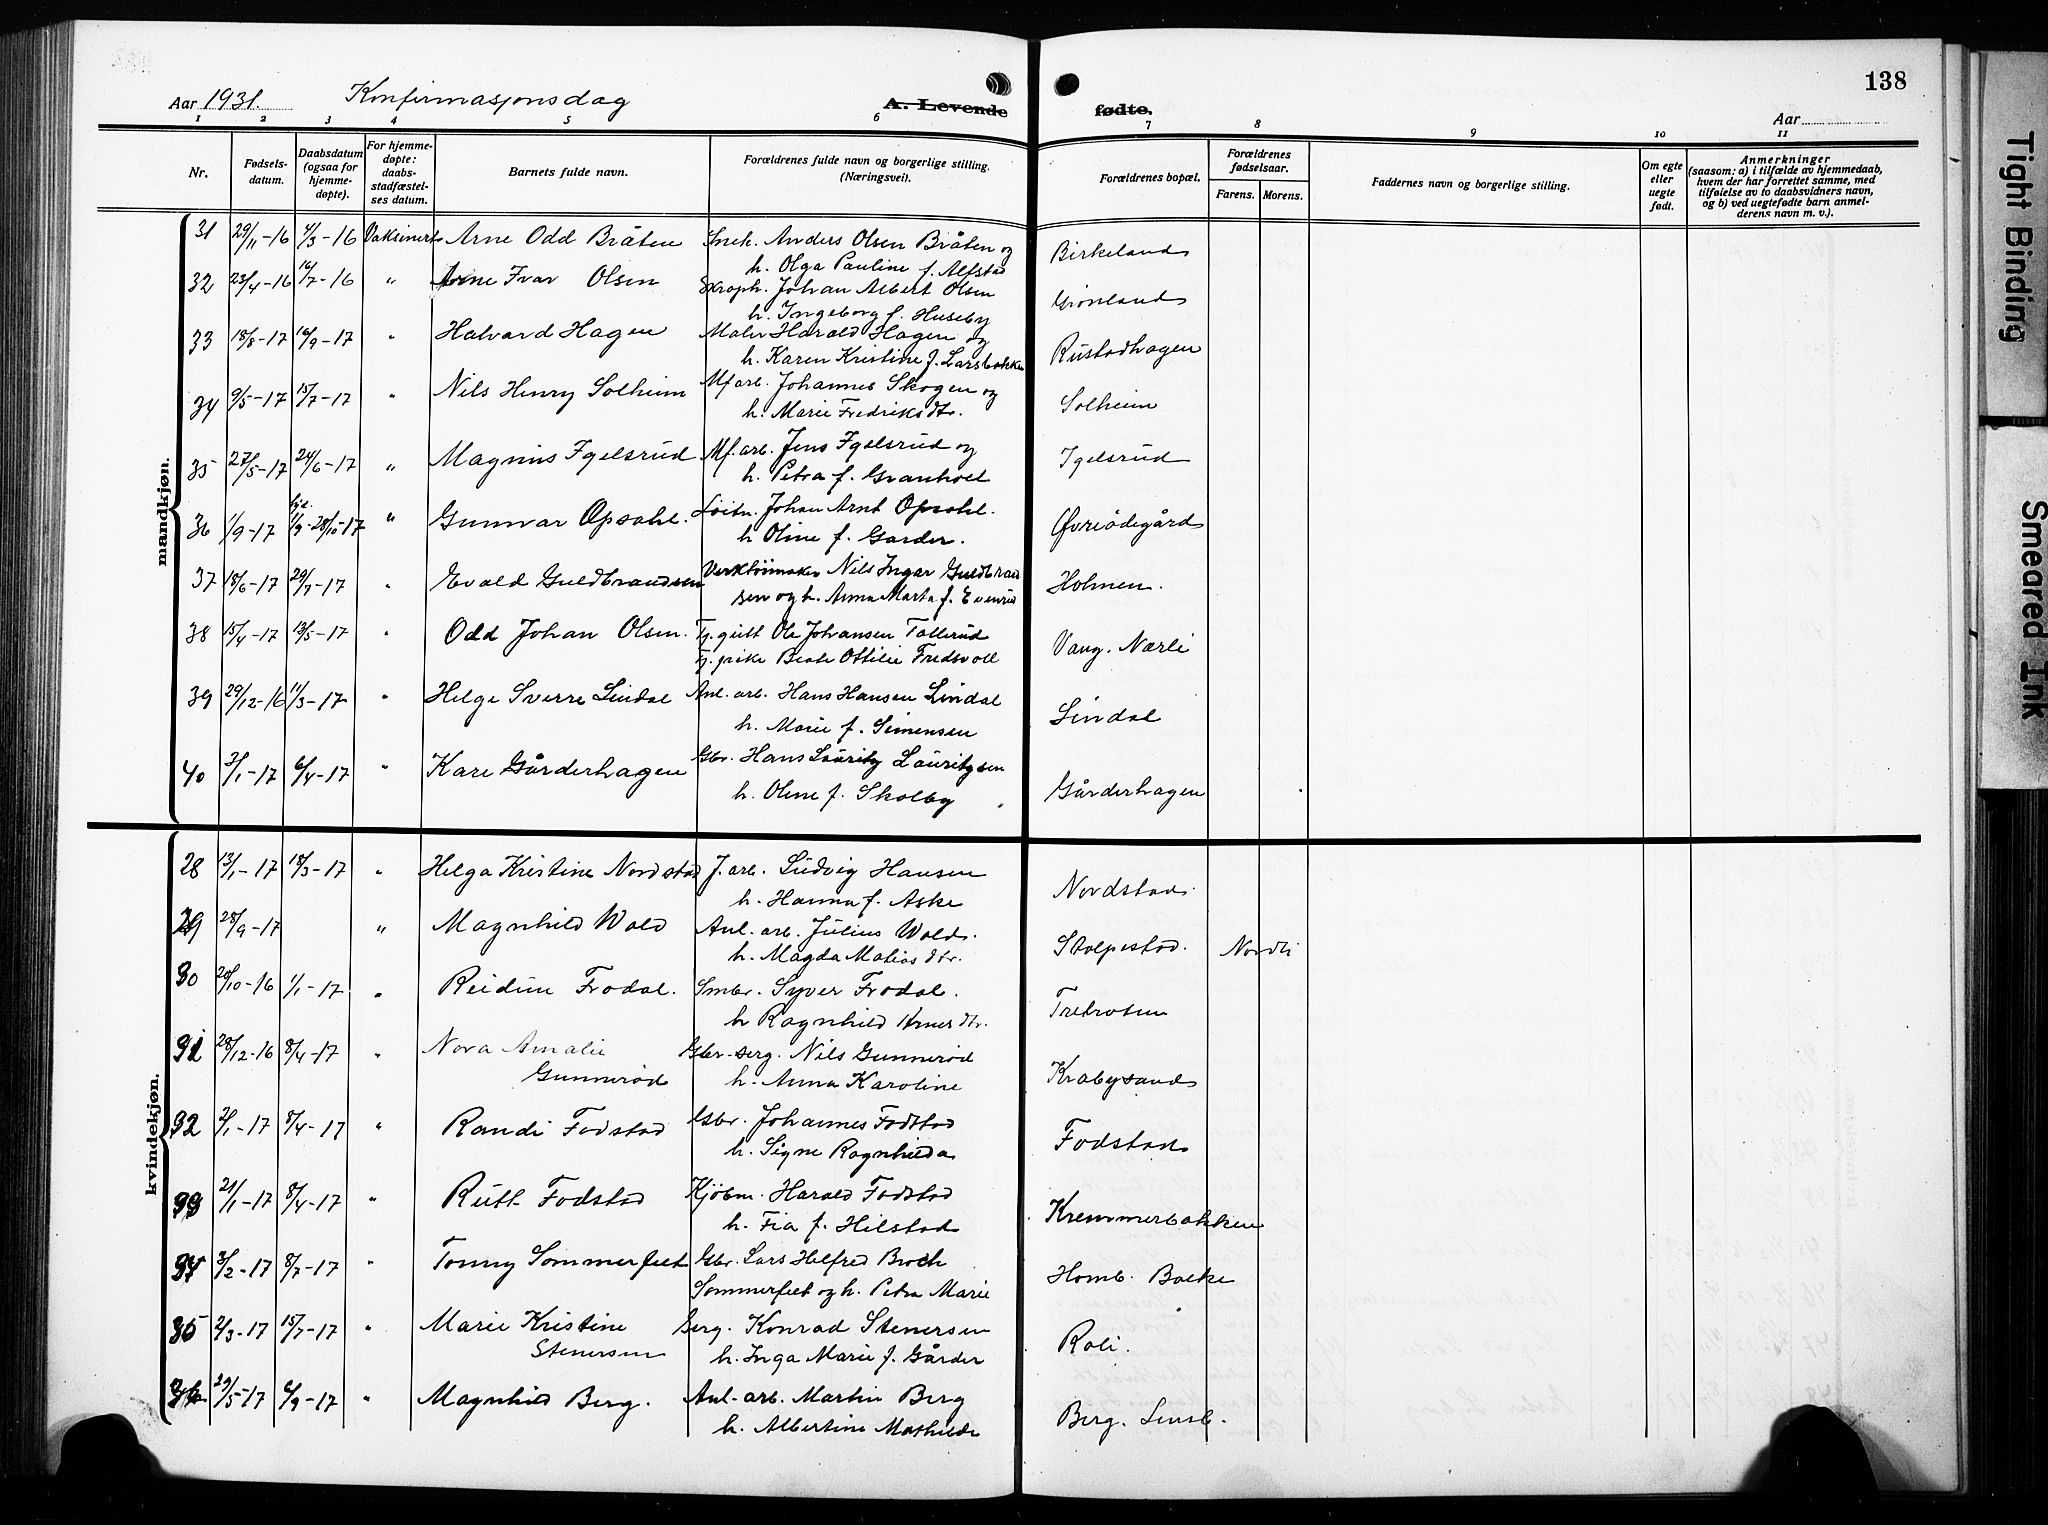 138
Aar 1931. Konfirmasjonsdag A. Levende fødte. Aar
1 2 3 4 5 6 7 8 9 10 11
Nr.
Fødsels-
datum.
Daabsdatum
(ogsaa for
hjemme-
døpte).
For hjemme-
døpte:
daabs-
stadfæstel-
ses datum.
Barnets fulde navn.
Forældrenes fulde navn og borgerlige stilling.
(Næringsvei).
Forældrenes bopæl.
Forældrenes
fødselsaar.
Farens. Morens.
Faddernes navn og borgerlige stilling.
Om egte
eller
uegte
født.
Anmerkninger
(saasom: a) i tilfælde av hjemmedaab,
hvem der har forrettet samme, med
tilføielse av to daabsvidners navn,
og b) ved uegtefødte barn anmel-
derens navn m. v.).
mandkjøn.
31 29/11-16 4/3-16 Vaksinert Arne Odd Bråten Snek. Anders Olsen Bråten og
h. Olga Pauline f. Alfstad
Birkeland
32 23/4-16 16/7-16 " Arne Ivar Olsen Johan Albert Olsen
h. Ingeborg f. Huseby
Grönland
33 18/8-17 16/9-17 " Halvard Hagen Maler Harald Hagen og
h. Karen Kristine f. Larsbakken
Rustadhagen
34 9/5-17 15/7-17 " Nils Henry Solheim Mf.arb. Johannes Skogen og
h. Marie Fredriksdtr.
Solheim
35 27/5-17 24/6-17 " Magnus Igelsrud Mf.arb. Jens Igelsrud og
h. Petra f. Granholt
Igelsrud
36 1/9-17 hjd. 1/9-28/10-17 " Gunvar Opsahl. Löitn. Johan Arnt Opsahl.
h Oline f. Garder.
Øvreödegård
37 18/6-17 29/7-17 " Evald Guldbrandsen Verktöimaker Nils Ingar Guldbrand
sen og h. Anna Marta f. Evenrud
Holmen.
38 15/4-17 13/5-17 " Odd Johan Olsen. Tj.gutt Ole Johansen Tollerud
Tj.pike Beate Ottilie Fredsvoll
Vang. Nærli
39 29/12-16 11/3-17 " Helge Sverre Lindal Anl. arb. Hans Hansen Lindal
h. Marie f. Simensen
Lindal
40 3/1-17 6/4-17 " Kare Gårderhagen Gbr. Hans Lauritz Lauritzsen
h. Oline f. Skolby
Gårderhagen
kvindekjøn.
28 13/1-17 18/3-17 " Helga Kristine Nordstad J. arb. Ludvig Hansen
h. Hanna f. Aske
Nordstad.
29 28/9-17 " Magnhild Wold Anl. arb. Julius Wold.
h. Magda Matiasdtr.
Stolpestad. Nordli
30 20/10-16 1/1-17 " Reidun Frodal. Smbr. Syver Frodal.
h Ragnhild Arnesdtr.
Tretrosen
31 28/12-16 8/4-17 " Nora Amalie
Gunnerød
Gbr-serg. Nils Gunnerød
h. Anna Karoline
Krabysand
32 2/1-17 8/4-17 " Randi Fodstad Gbr. Johannes Fodstad
h. Signe Ragnhilda
Fodstad
33 21/1-17 8/4-17 " Ruth Fodstad Kjöbm. Harald Fodstad
h. Fia f. Hilstad
Kremmerbakken
34 3/2-17 8/7-17 " Tonny Sommerfelt Gbr. Lars Helfred Broch
Sommerfelt og h. Petra Marie
Homb. Balke
35 2/3-17 15/7-17 " Marie Kristine
Stenersen
Serg. Konrad Stenersen
h. Inga Marie f. Gårder
Roli.
36 29/5-17 6/9-17 " Magnhild Berg. Anl-arb. Martin Berg
h. Albertine Mathilde
Berg.
Tight Binding
Smeared Ink